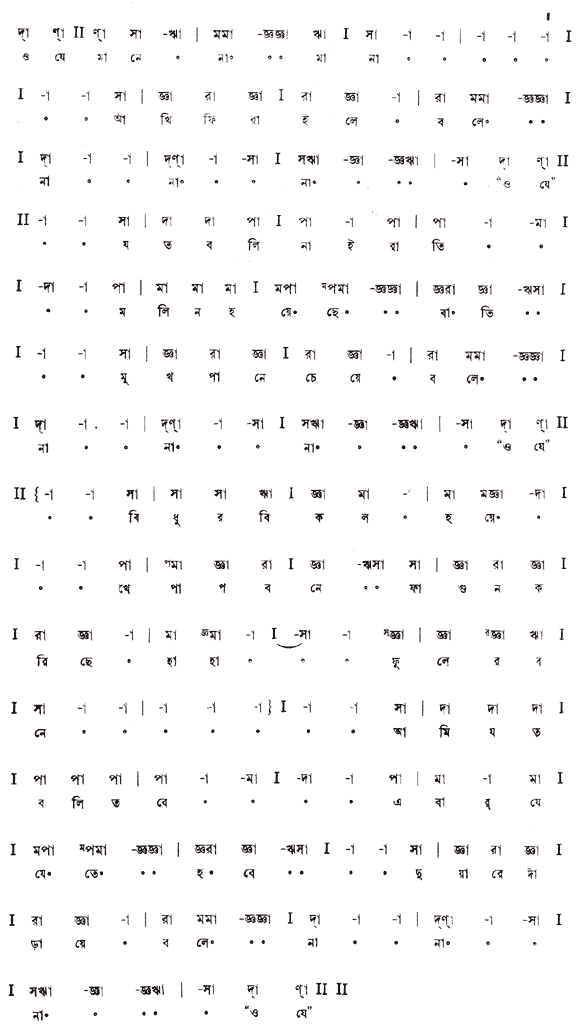 দ্‌া ণ্‌া II ণ্‌া সা -ঋা | মমা -জ্ঞজ্ঞা ঋা I সা -া -া | -া -া -া I
ও যে মা নে ০ না০ ০০ মা না ০ ০ ০ ০ ০
I -া -া সা | জ্ঞা রা জ্ঞা I রা জ্ঞা -া | রা মমা -জ্ঞজ্ঞা I
০ ০ আঁ খি ফি রা ই লে ০ ব লে০ ০০
I দ্‌া -া -া | দ্‌ণ্‌া -া -সা I সঋা -জ্ঞা -জ্ঞঋা | -সা দ্‌া ণ্‌া II
না ০ ০ না০ ০ ০ না০ ০ ০০ ০ “ও যে”
II -া -া সা | দা দা পা I পা -া পা | পা -া -মা I
০ ০ য ত ব লি না ই রা তি ০ ০
I -দা -া পা | মা মা মা I মপা ᵐপমা -জ্ঞজ্ঞা | জ্ঞরা জ্ঞা -ঋসা I
০ ০ ম লি ন হ য়ে০ ছে০ ০০ বা০ তি ০০
I -া -া সা | জ্ঞা রা জ্ঞা I রা জ্ঞা -া | রা মমা -জ্ঞজ্ঞা I
০ ০ মু খ পা নে চে য়ে ০ ব লে০ ০০
I দ্‌া -া -া | দ্‌ণ্‌া -া -সা I সঋা -জ্ঞা -জ্ঞঋা | -সা দ্‌া ণ্‌া II
না ০ ০ না০ ০ ০ না০ ০ ০০ ০ “ও যে”
II { -া -া সা | সা সা ঋা I জ্ঞা মা -া | মা মজ্ঞা -দা I
০ ০ বি ধু র বি ক ল ০ হ য়ে০ ০
I -া -া পা | ᵖমা জ্ঞা রা I জ্ঞা -ঋসা সা | জ্ঞা রা জ্ঞা I
০ ০ খে পা প ব নে ০০ ফা গু ন ক
I রা জ্ঞা -া | মা ᵈজ্ঞমা -া I -সা -া ˢজ্ঞা | জ্ঞা ʳজ্ঞা ঋা I
রি ছে ০ হা হা ০ ০ ০ ফু লে র ব
I সা -া -া | -া -া -া } I -া -া সা | দা দা দা I
নে ০ ০ ০ ০ ০ ০ ০ আ মি য ত
I পা পা পা | পা -া -মা I -দা -া পা | মা -া মা I
ব লি ত বে ০ ০ ০ ০ এ বা র্ যে
I মপা ᵐপমা -জ্ঞজ্ঞা | জ্ঞরা জ্ঞা -ঋসা I -া -া সা | জ্ঞা রা জ্ঞা I
যে০ তে০ ০০ হ০ বে ০০ ০ ০ দু য়া রে দাঁ
I রা জ্ঞা -া | রা মমা -জ্ঞজ্ঞা I দ্‌া -া -া | দ্‌ণ্‌া -া -সা I
ড়া য়ে ০ ব লে০ ০০ না ০ ০ না০ ০ ০
I সঋা -জ্ঞা -জ্ঞঋা | -সা দ্‌া ণ্‌া II II
না০ ০ ০০ ০ “ও যে”